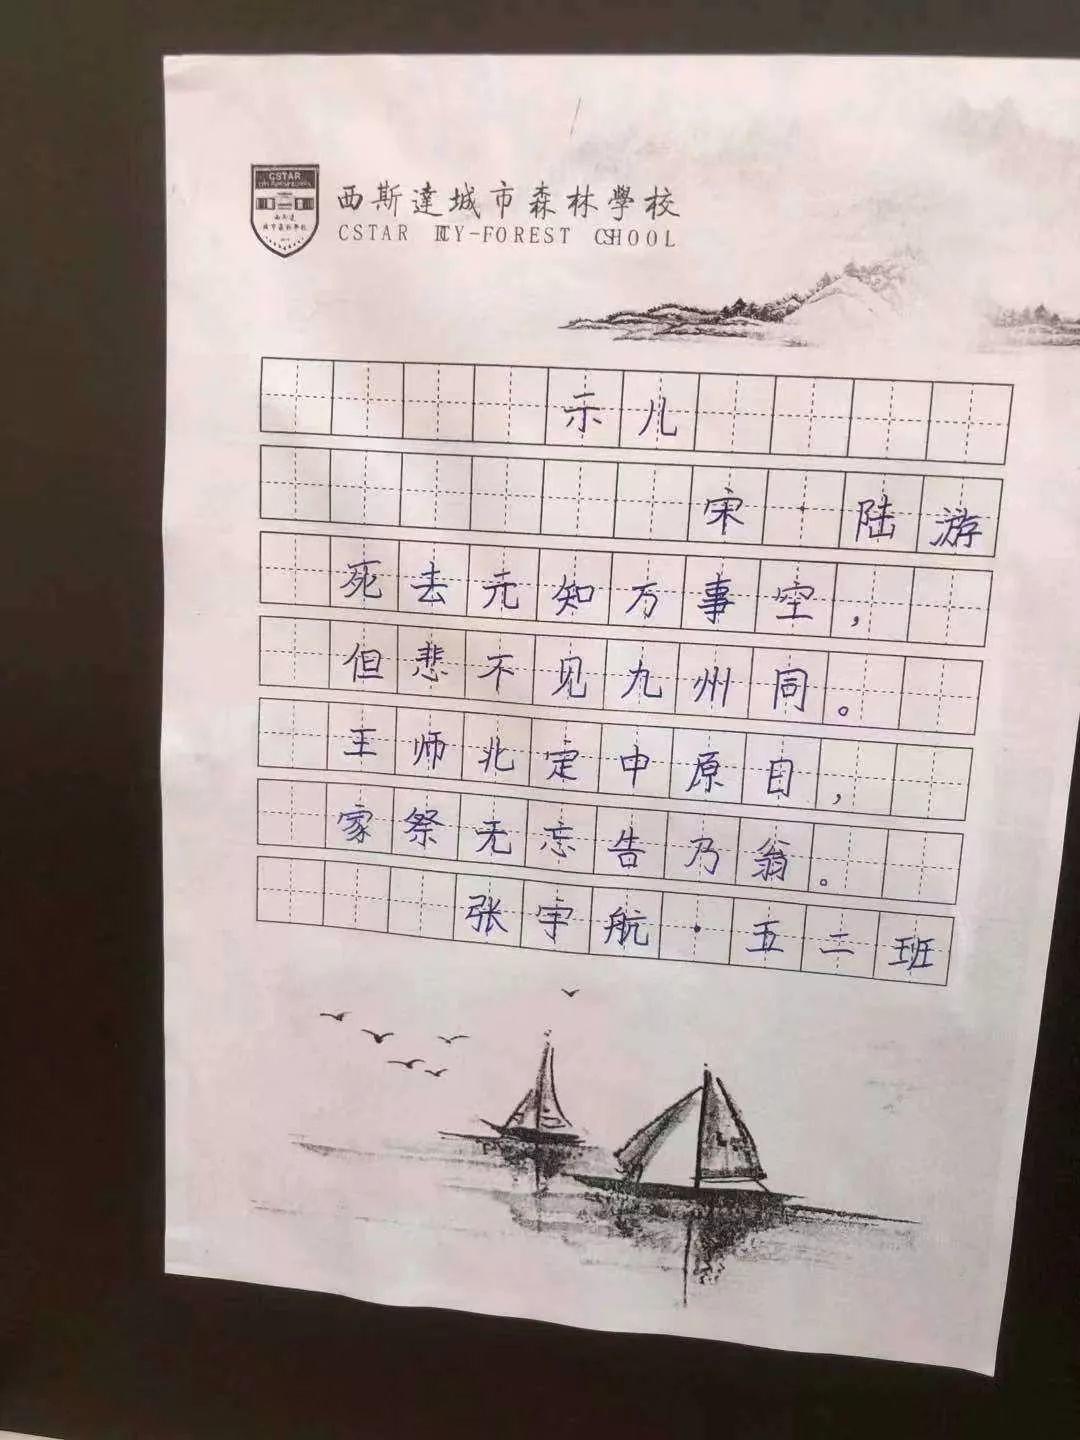 CSTAR
西斯达
城市森林學校
西斯達城市森林學校
CSTAR CITY-FOREST CSHOOL
示儿
宋·陆游
死去元知万事空，
但悲不见九州同。
王师北定中原日，
家祭无忘告乃翁。
张宇航·五二班